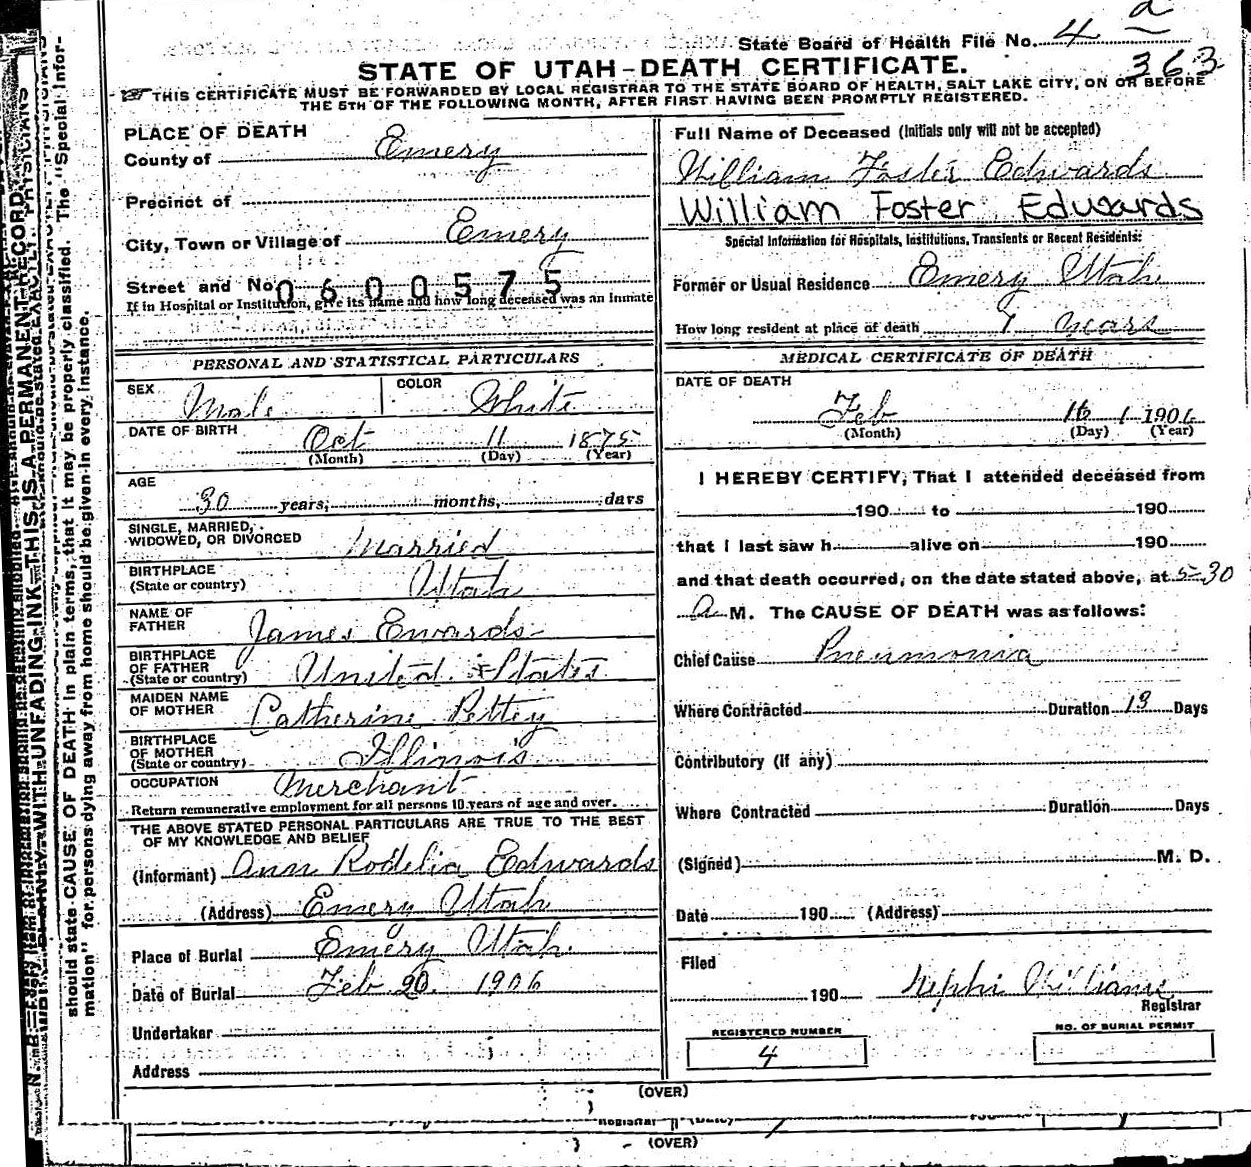 State Board of Health File No. 4 a
363
STATE OF UTAH-DEATH CERTIFICATE.
THIS CERTIFICATE MUST BE FORWARDED BY LOCAL REGISTRAR TO THE STATE BOARD OF HEALTH, SALT LAKE CITY, ON OR BEFORE
THE 5TH OF THE FOLLOWING MONTH, AFTER FIRST HAVING BEEN PROMPTLY REGISTERED.
PLACE OF DEATH
County of Emery
Precinct of
City, Town or Village of Emery
Street and No.
0600575
If in Hospital or Institution, give its name and how long deceased was an Inmate
Full Name of Deceased (Initials only will not be accepted)
William Foster Edwards
William Foster Edwards
Special Information for Hospitals, Institutions, Transients or Recent Residents:
Former or Usual Residence Emery Utah
How long resident at place of death 9 years
PERSONAL AND STATISTICAL PARTICULARS
SEX Male COLOR White
DATE OF BIRTH Oct 11 1875
(Month) (Day) (Year)
AGE
30 years, months, days
SINGLE, MARRIED,
WIDOWED, OR DIVORCED Married
BIRTHPLACE
(State or country) Utah
NAME OF
FATHER James Ewards
BIRTHPLACE
OF FATHER
(State or country) United States
MAIDEN NAME
OF MOTHER Catherine Pettey
BIRTHPLACE
OF MOTHER
(State or country) Illinois
OCCUPATION Merchant
Return remunerative employment for all persons 10 years of age and over.
THE ABOVE STATED PERSONAL PARTICULARS ARE TRUE TO THE BEST
OF MY KNOWLEDGE AND BELIEF
(Informant) Ann Rodelia Edwards
(Address) Emery Utah
Place of Burial Emery Utah
Date of Burial Feb 20 1906
Undertaker
Address
MEDICAL CERTIFICATE OF DEATH
DATE OF DEATH
Feb 16 1906
(Month) (Day) (Year)
I HEREBY CERTIFY, That I attended deceased from
190 to 190
that I last saw h alive on 190
and that death occurred, on the date stated above, at 5-30
a M. The CAUSE OF DEATH was as follows:
Chief Cause Pneumonia
Where Contracted Duration 13 Days
Contributory (if any)
Where Contracted Duration Days
(Signed) M. D.
Date 190 (Address)
Filed
190 Nephi Williams
Registrar
REGISTERED NUMBER
4
NO. OF BURIAL PERMIT
(OVER)
(OVER)
should state CAUSE OF DEATH in plain terms, that it may be properly classified. The "Special Infor-
mation" for persons dying away from home should be given in every instance.
WITH UNFADING INK—THIS IS A PERMANENT RECORD